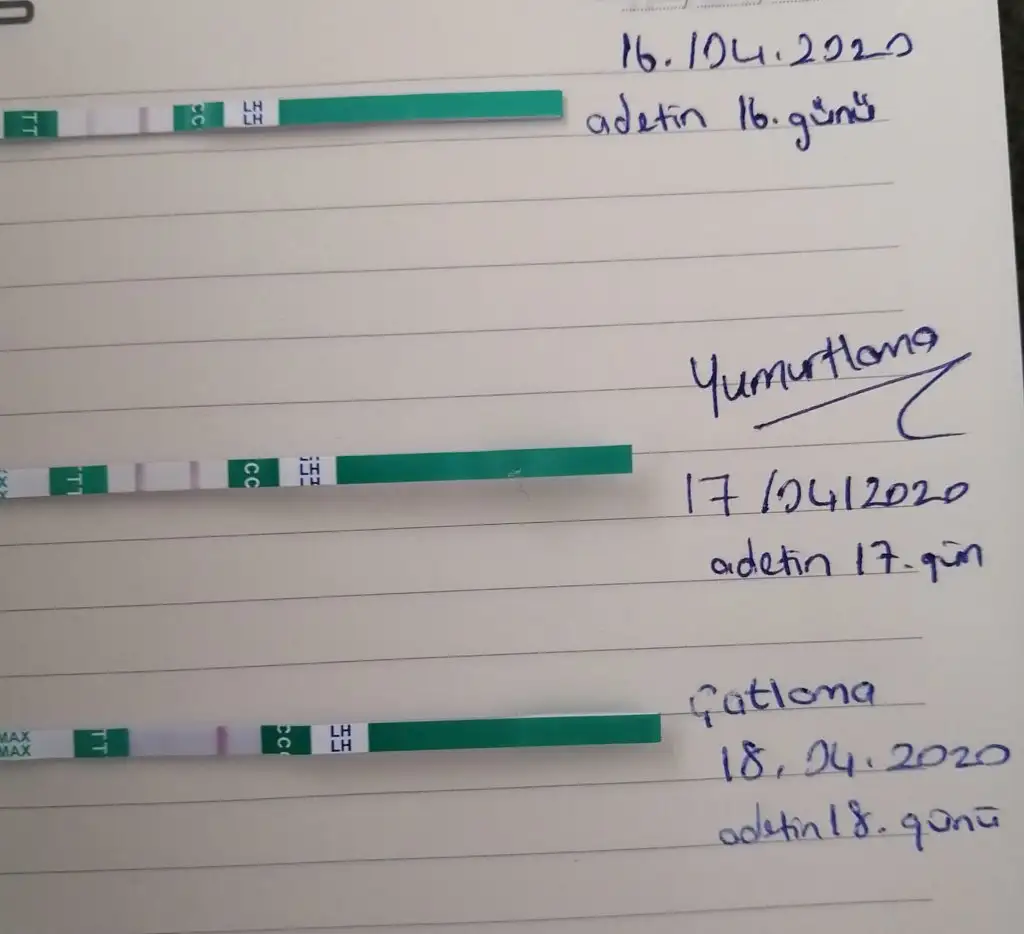 16./04.2020
TT
CC
LH
LH
adetin 16.günü
Yumurtlama
TT
CC
LH
LH
LH
17/04/2020
adetin 17.gün
Çatlama
MAX
MAX
TT
CC
LH
LH
18.04.2020
adetin 18.günü